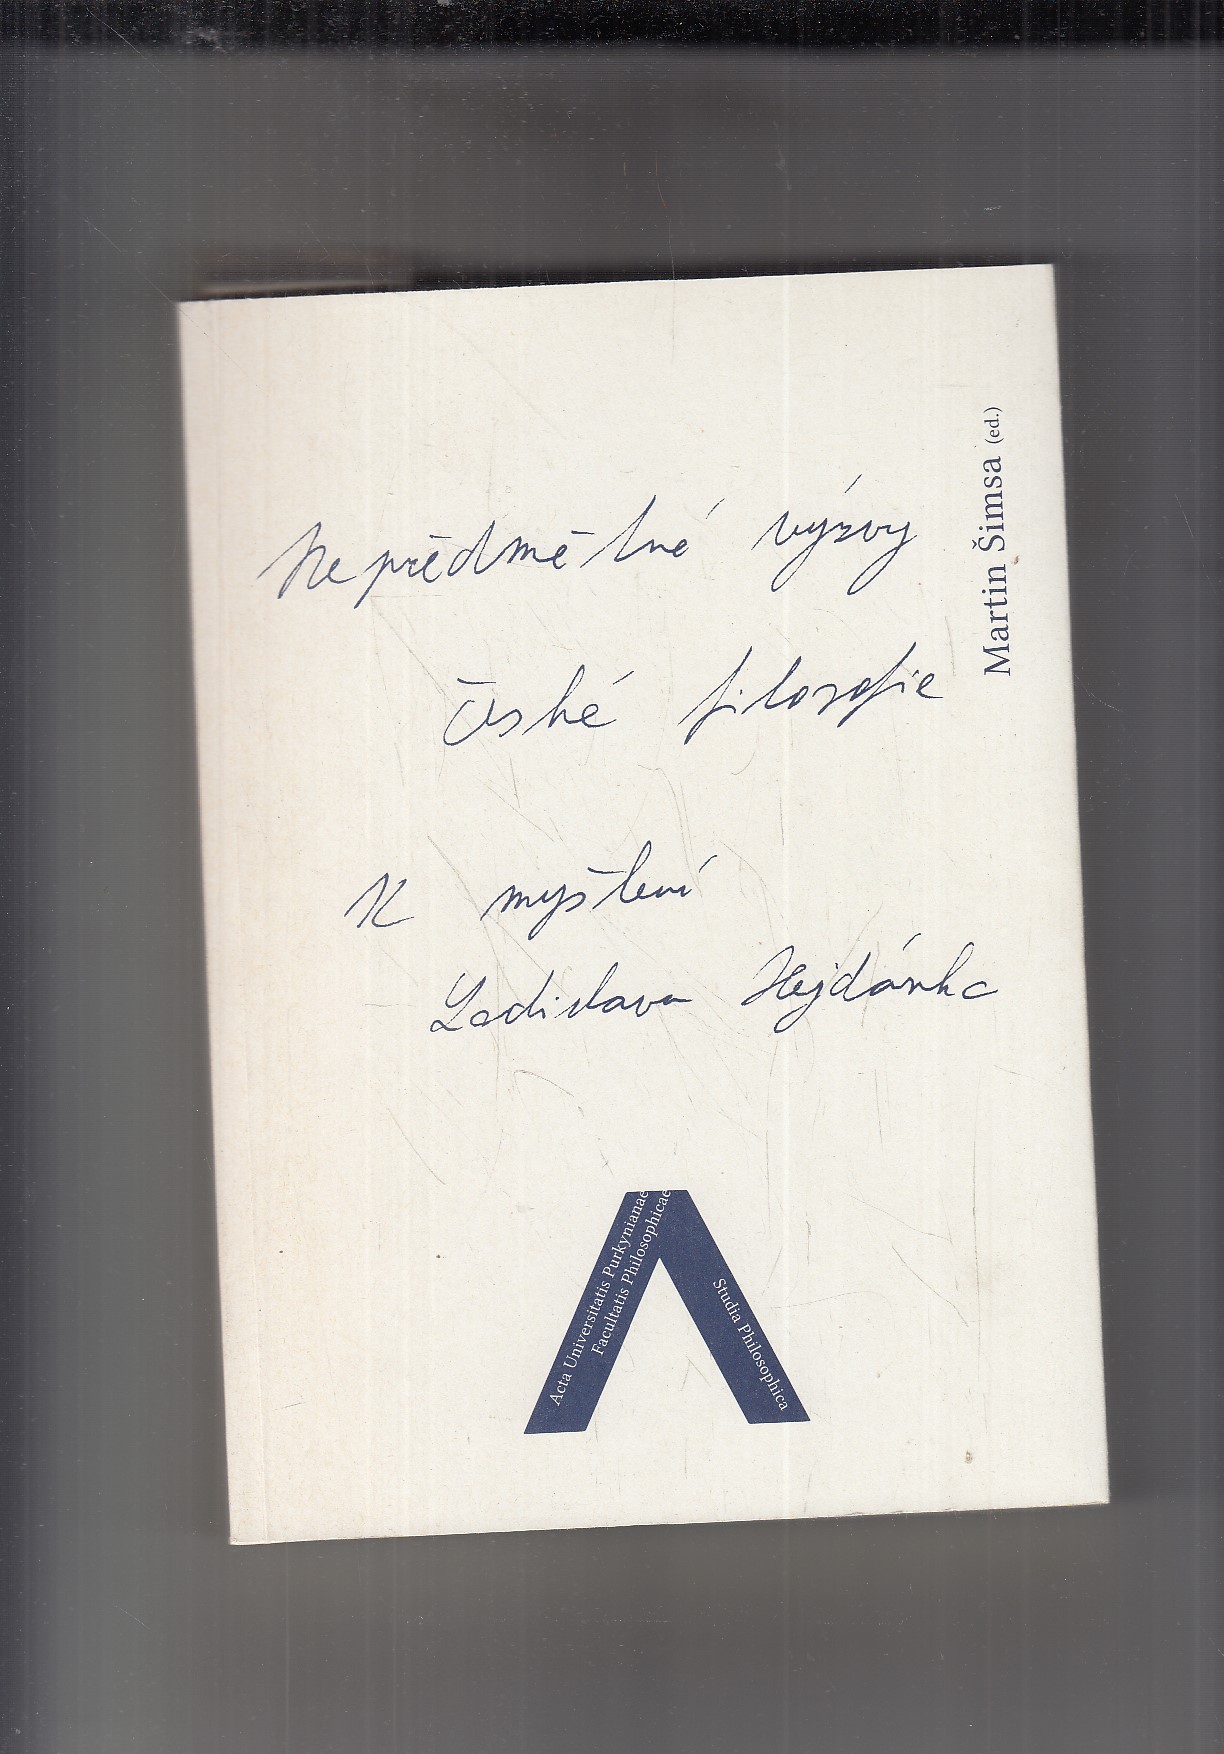 Nepředmětné výzvy
české filosofie
K myšlení
Ladislava Hejdánka
Martin Šimsa (ed.)
Acta Universitatis Purkynianae
Facultatis Philosophicae
Studia Philosophica